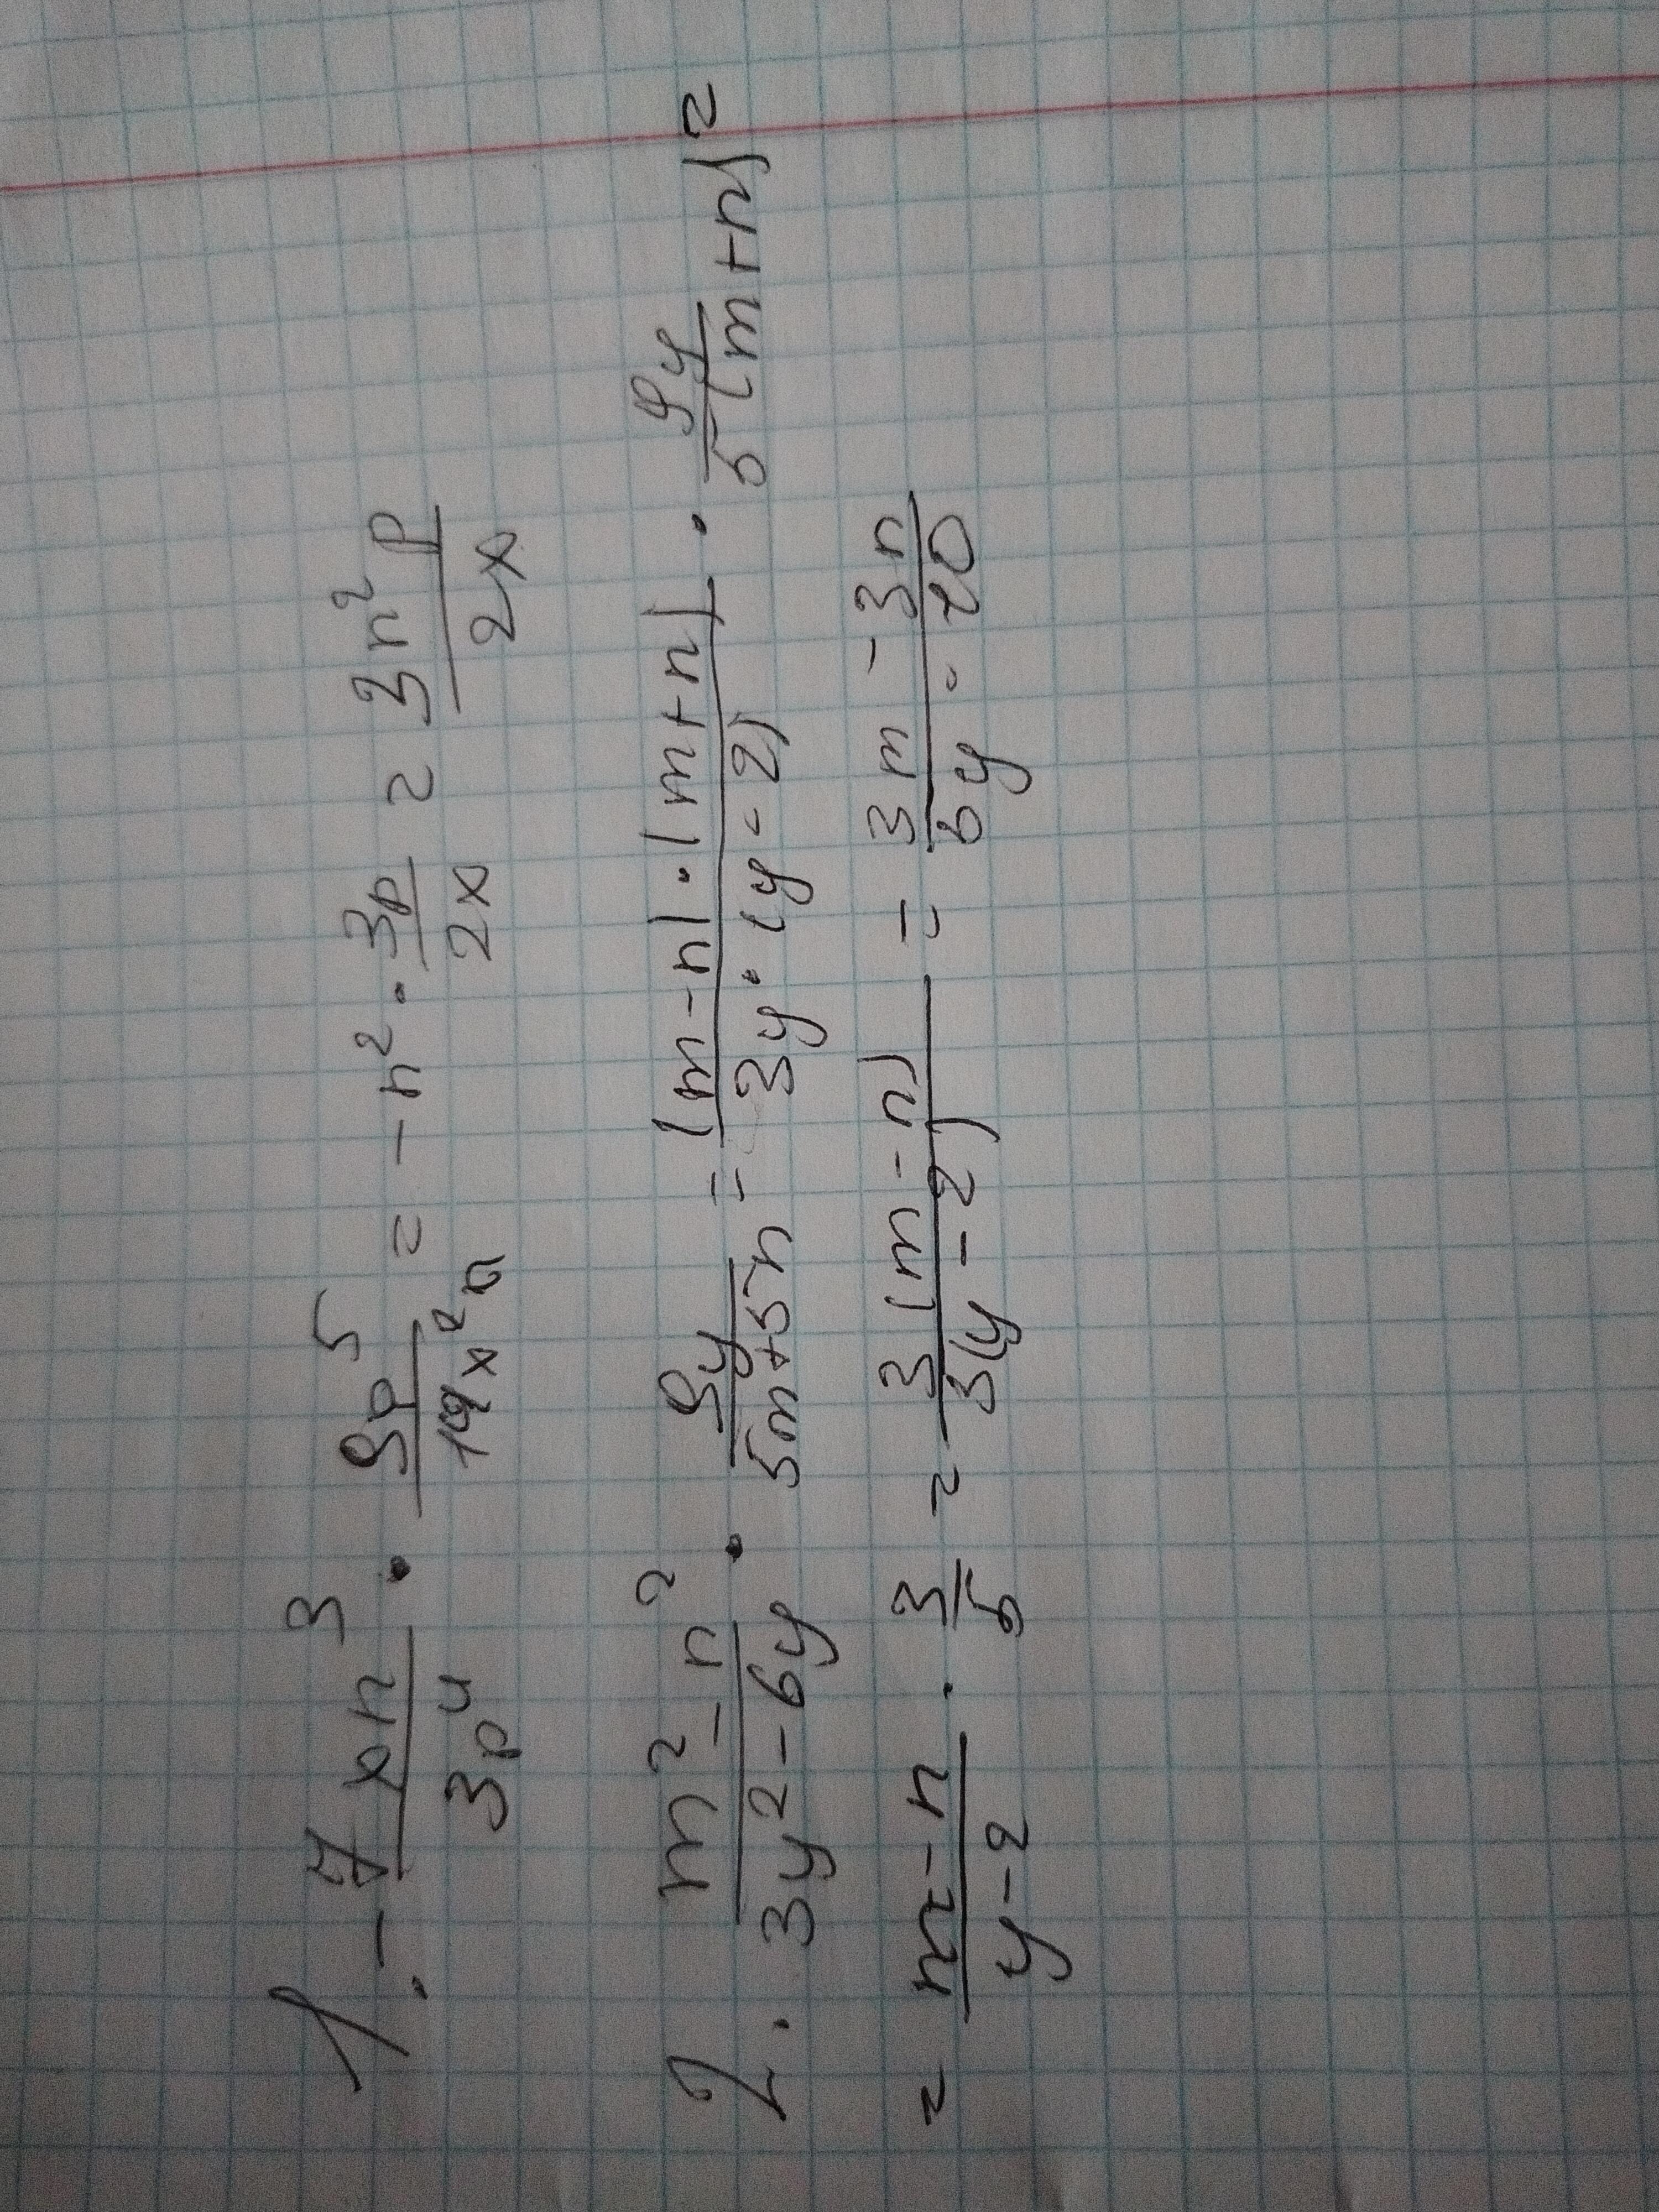 1. - 7xn³/3p⁴ · 9p⁵/14x²n = -n² · 3p/2x = 3n²p/2x
2. m²-n²/3y²-6y · 9y/5m+5n = (m-n)·(m+n)/3y·(y-2) · 9y/5(m+n) =
= m-n/y-2 · 3/5 = 3(m-n)/3(y-2) = 3m-3n/5y-10